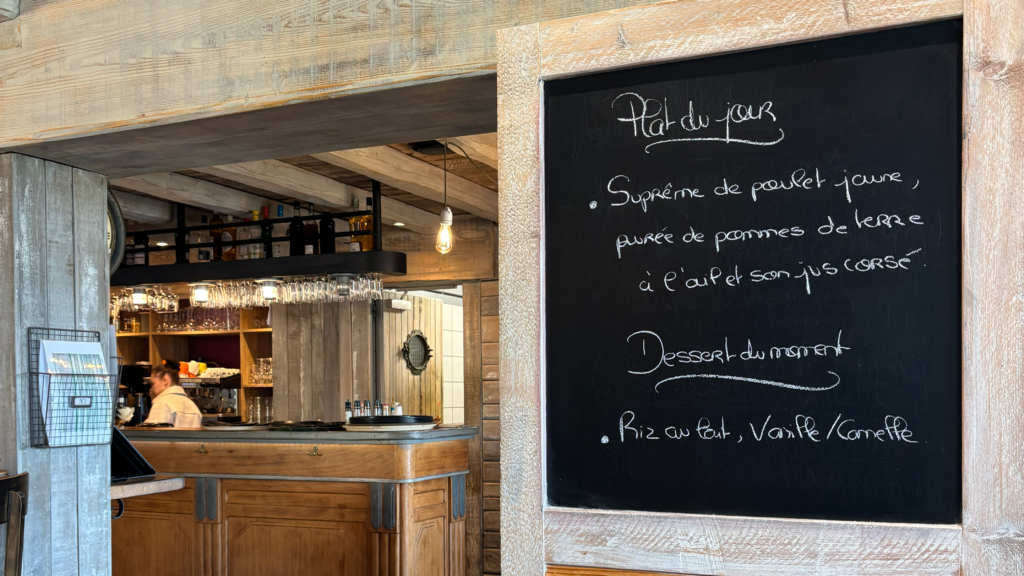 Plat du jour
. Suprême de poulet jaune,
purée de pommes de terre
à l'ail et son jus corsé.
Dessert du moment
. Riz au lait, Vanille/Cannelle